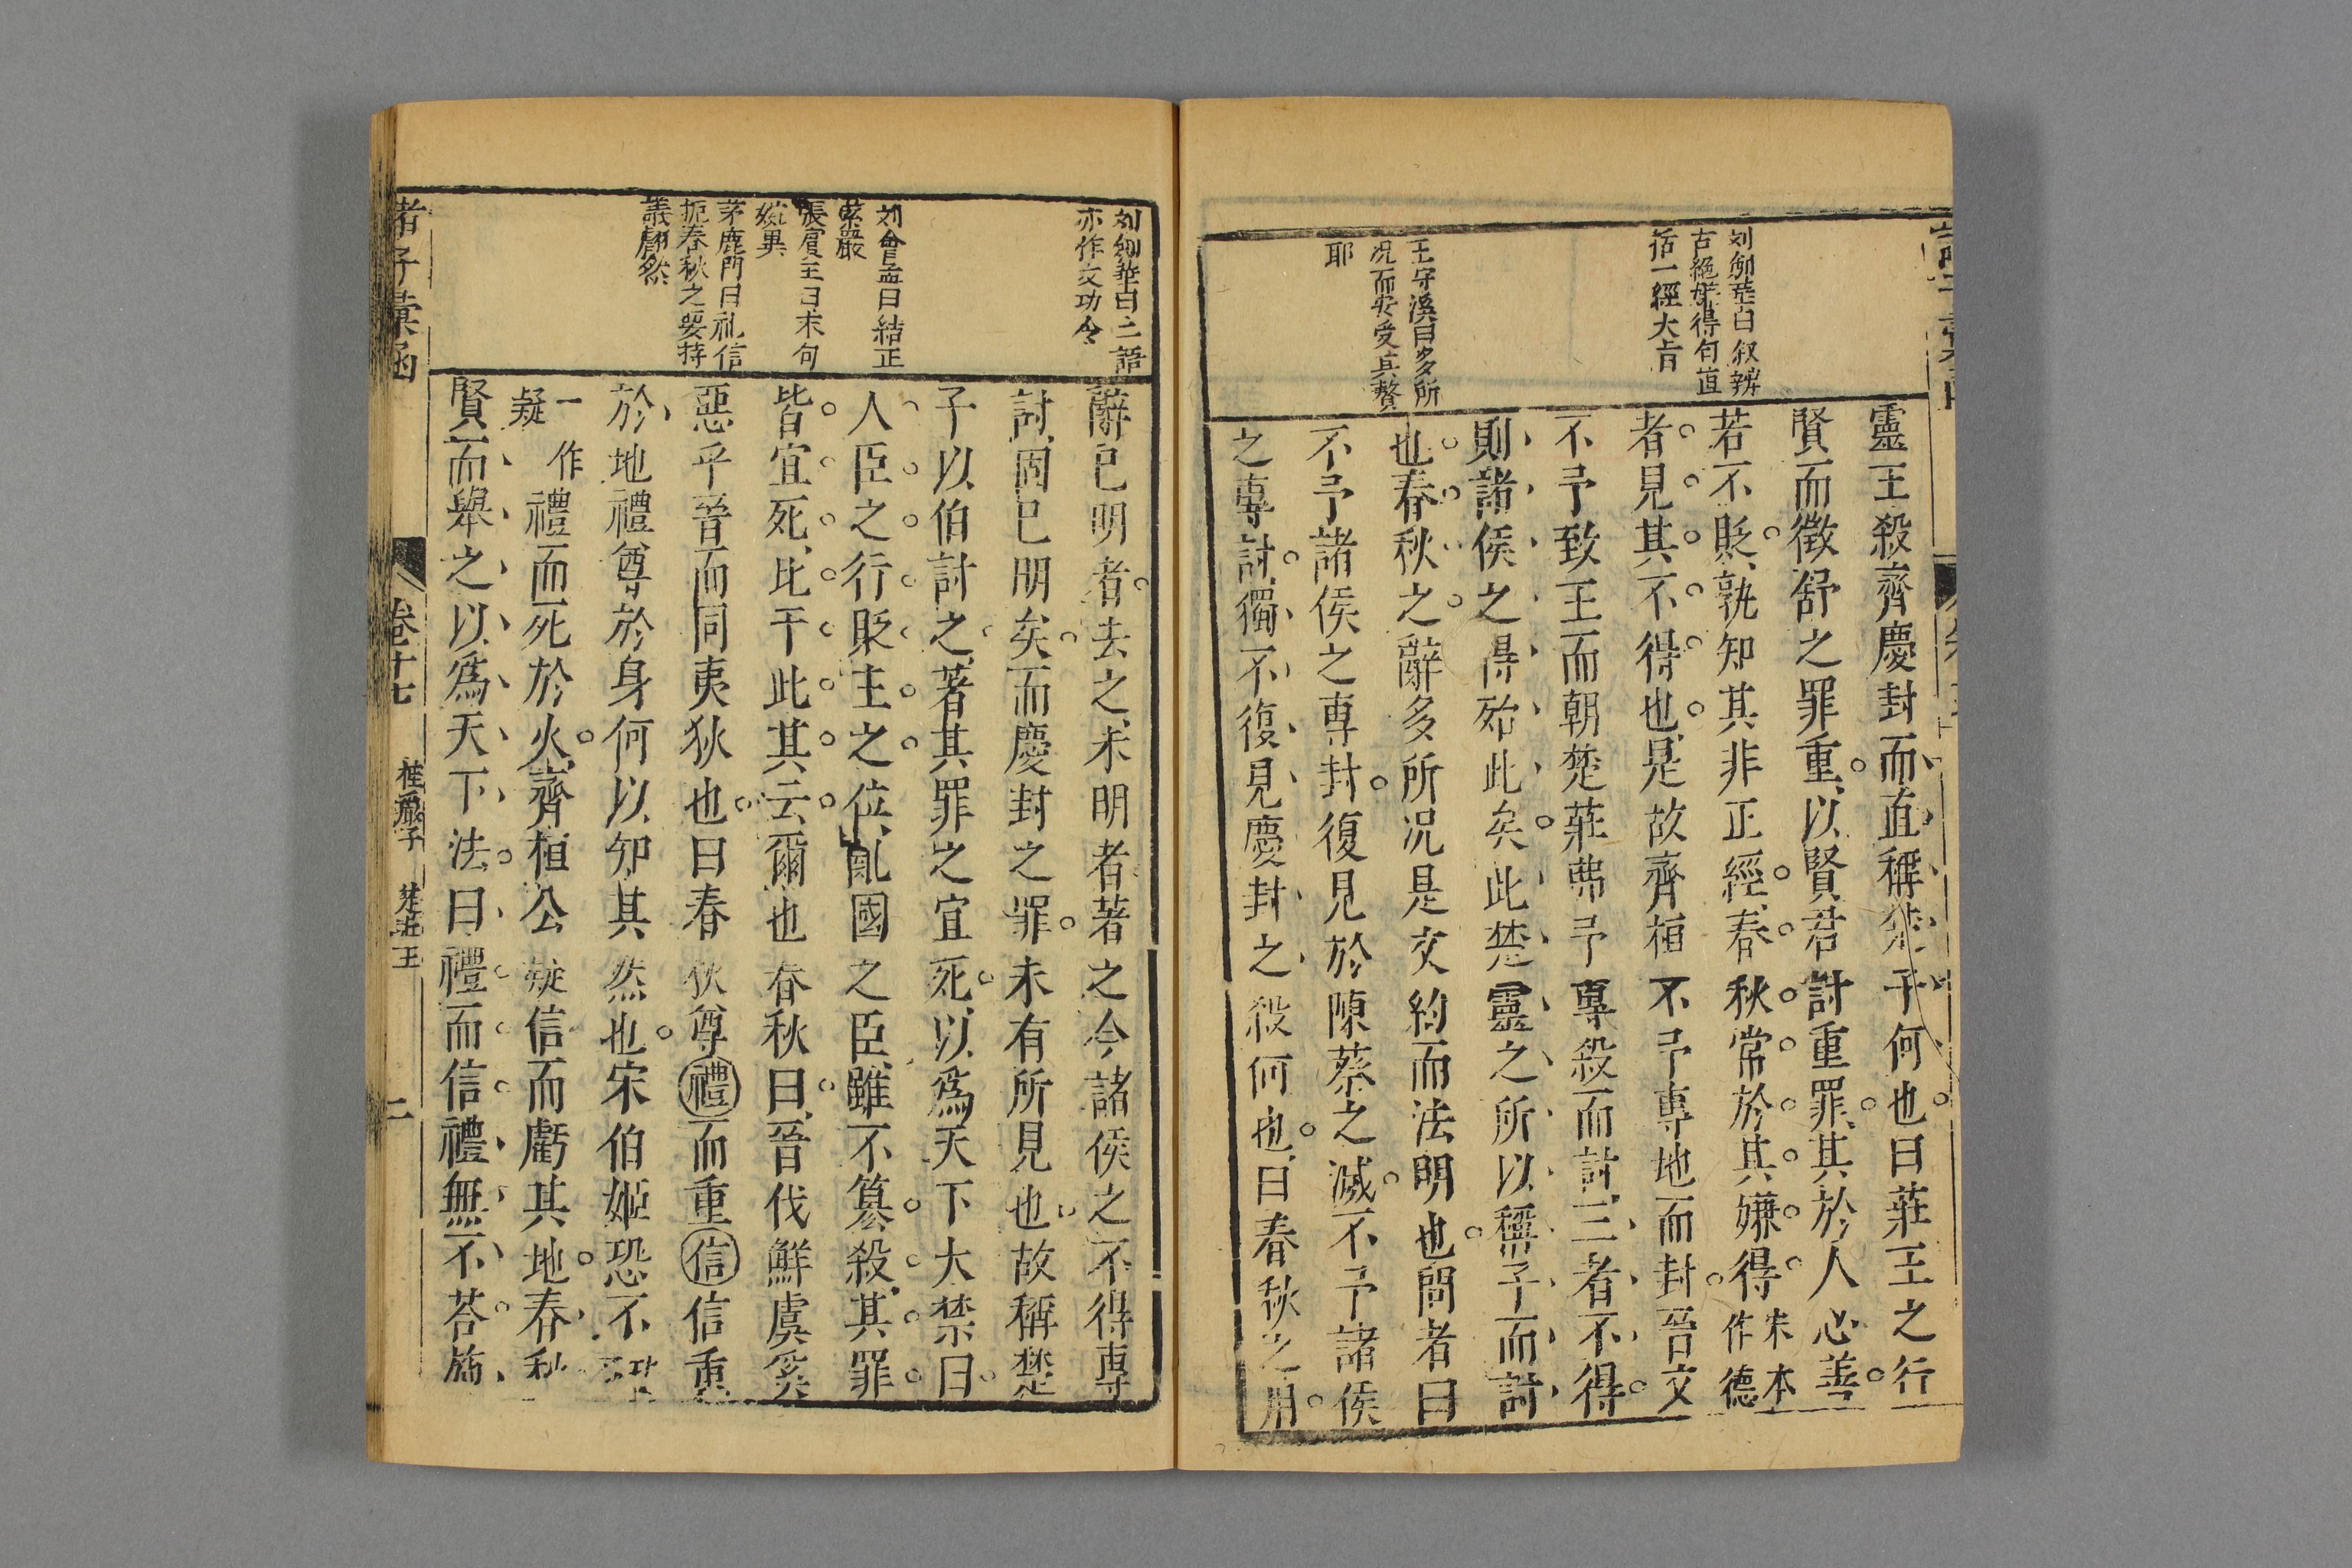 劉勿菴曰叙辨
古絶媄得句直
括一經大旨
王守溪曰多所
况而安受其贅
耶
靈王殺齊慶封而直稱楚子何也曰莊王之行
賢而徵舒之罪重以賢君討重罪其於人心善
若不貶孰知其非正經春秋常於其嫌得宋本作德
者見其不得也是故齊桓不予專地而封晉文
不予致王而朝楚莊弗予專殺而討三者不得
則諸侯之得殆此矣此楚靈之所以稱子而討
也春秋之辭多所况是文約而法明也問者曰
不予諸侯之專封復見於陳蔡之滅不予諸侯
之專討獨不復見慶封之殺何也曰春秋之用
曰二語
亦作文功令
劉會孟曰結正
緊嚴
張賔王曰末句
茅鹿門曰礼信
扼春秋之要持
議翩然
辭已明者去之未明者著之今諸侯之不得專
討固已明矣而慶封之罪未有所見也故稱楚
子以伯討之著其罪之宜死以爲天下大禁曰
人臣之行貶主之位亂國之臣雖不篡殺其罪
皆宜死比干此其云爾也春秋曰晉伐鮮虞奚
惡乎晉而同夷狄也曰春秋尊禮而重信信重
於地禮尊於身何以知其然也宋伯姬恐不
一作疑禮而死於火齊桓公疑信而虧其地春秋
賢而舉之以爲天下法曰禮而信禮無不荅施
諸子彙函
卷十七
桂巖子
楚莊王
二